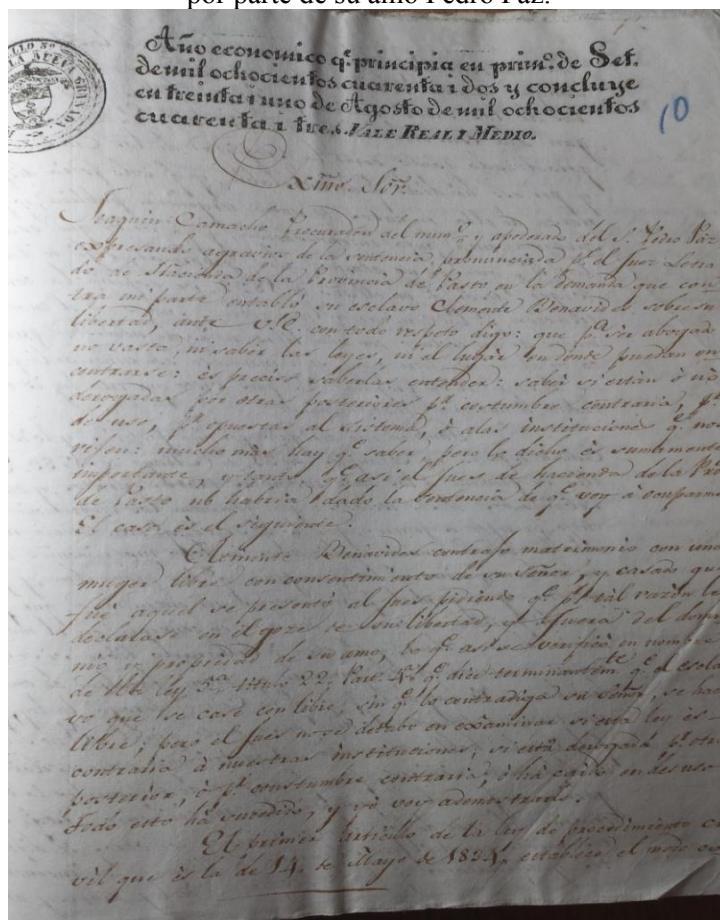 por parte de su amo Pedro Paz.
LLO 8º
LA NUEVA GRANADA
Año economico q.e principia en prim.o de Set.
de mil ochocientos cuarenta i dos y concluye
en treinta i uno de Agosto de mil ochocientos
cuarenta i tres. VALE REAL I MEDIO.
10
Exmo. Sōr.
Joaquin Camacho Procurador del num.o y apoderado del S. Pedro Paz
expresando agravios de la sentencia pronunciada p.r el juez Letra
do de Hacienda de la Provincia de Pasto en la demanda que con
tra mi parte entabló su esclavo Clemente Benavides sobre su
libertad, ante V.E. con todo respeto digo: que p.a ser abogado
no vasta, ni saber las leyes, ni el lugar en donde puedan en
contrarse: es preciso saberlas entender: saber si están ó nó
derogadas por otras posteriores p.r costumbre contraria, p.r
de uso, p.r opuestas al sistema, ó alas instituciones q.e nos
rijen: mucho mas hay q.e saber, pero lo dicho és sumamente
importante, y tanto, q.e asi el jues de hacienda de la Pro
de Pasto no habria dado la sentencia de q.e voy á ocuparme
El caso es el siguiente.
Clemente Benavides contrajo matrimonio con una
muger libre con consentimiento de su Señor, y casado que
fué aquel se presentó al jues pidiendo q.e p.r tal razón le
declarase en el goze de su libertad, y afuera del domi
nio y propiedad de su amo, lo q.e asi se verificó en nombre
de la ley 5.a titulo 22, Part. 4.a q.e dice terminantem.te q.e el escla
vo que se case con libre, sin q.e lo contradiga su Señor, se hace
libre; pero el jues no se detubo en ecsaminar si esta ley es
contraria á nuestras instituciones, si está derogada p.r otra
posterior, ó p.r constumbre contraria, ó há caido en desuso
Todo esto há sucedido, y yó voy ademostrarlo.
El primer Articulo de la ley de procedimiento ci
vil que és la de 14 de Mayo de 1834, establece el modo co